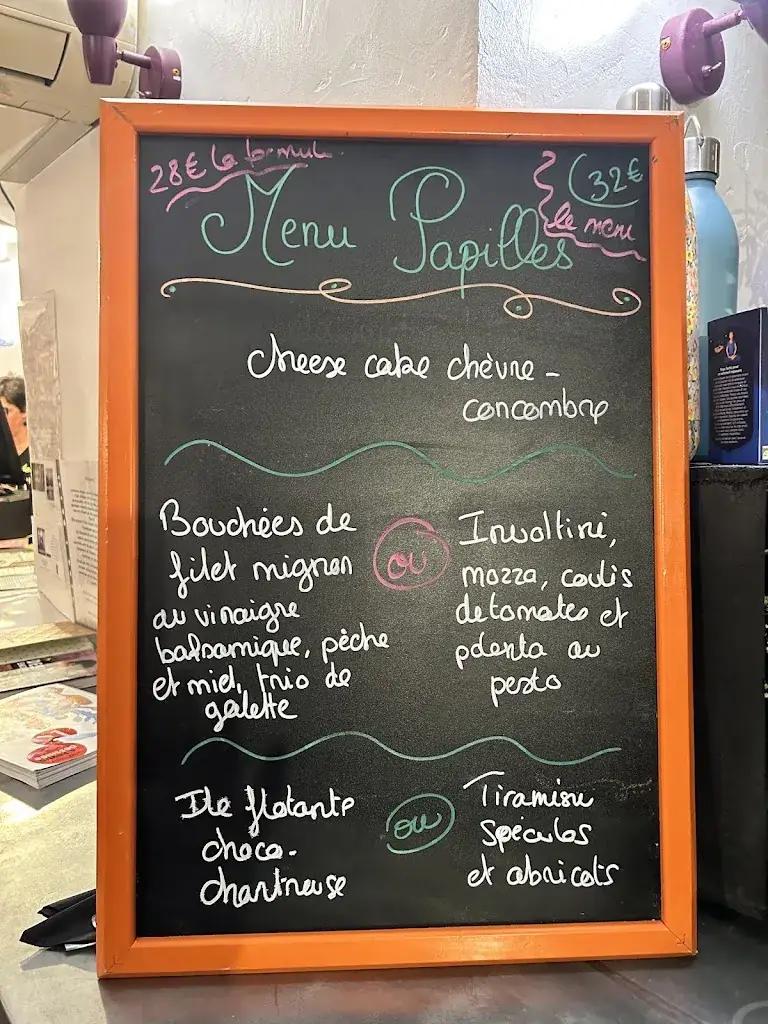 28€ la formule
32€
le menu
Menu Papilles
cheese cake chèvre -
concombre
Bouchées de
filet mignon
au vinaigre
balsamique, pêche
et miel, trio de
galette
ou
Involtini,
mozza, coulis
de tomates et
polenta au
pesto
Ile flotante
choco-
chartreuse
ou
Tiramisu
spéculos
et abricots